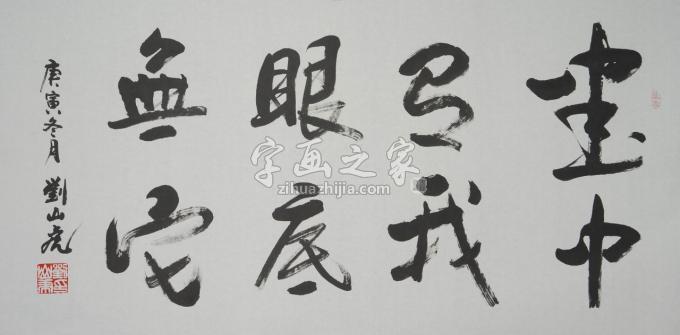 畫中
有我
眼底
無它
庚寅冬月 劉山虎
字画之家
zihuazhijia.com